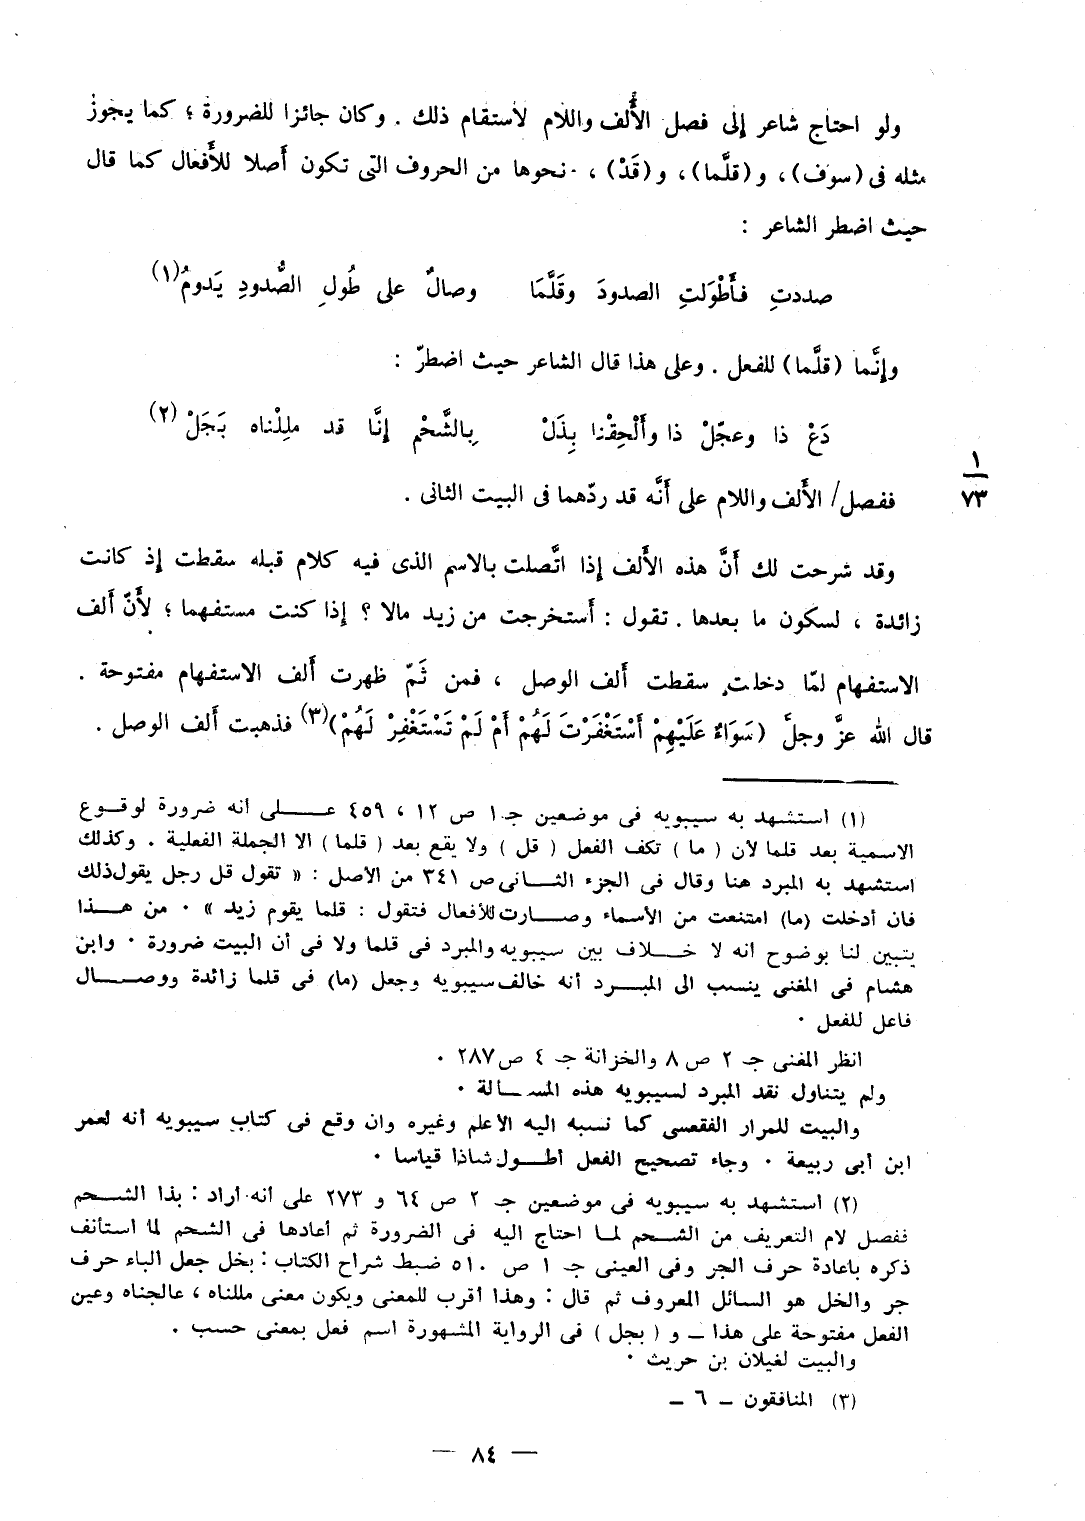 ولو احتاج شاعر إلى فصل الأَلف واللام لاستقام ذلك . وكان جائزا للضرورة ؛ كما يجوزُ
مثله فى (سوف) ، و (قلَّما) ، و(قَدْ) ، نحوها من الحروف التى تكون أَصلا للأَفعال كما قال
حيث اضطر الشاعر :
صددتِ فأَطْوَلتِ الصدودَ وقَلَّمَا وصالٌ على طُولِ الصُّدودِ يَدومُ(١)
وإنَّما (قلَّما) للفعل . وعلى هذا قال الشاعر حيث اضطرّ :
دَعْ ذا وعجّلْ ذا وأَلْحِقْنا بِذَلْ بِالشَّحْمِ إنَّا قد مللْناه بَجَلْ (٢)
١
٧٣
ففصل/ الأَلف واللام على أَنَّه قد ردّهما فى البيت الثانى .
وقد شرحت لك أَنَّ هذه الأَلف إذا اتَّصلت بالاسم الذى فيه كلام قبله سقطت إذ كانت
زائدة ، لسكون ما بعدها . تقول : أَستخرجت من زيد مالا ؟ إذا كنت مستفهما ؛ لأَنّ أَلف
الاستفهام لمّا دخلت سقطت أَلف الوصل ، فمن ثَمّ ظهرت أَلف الاستفهام مفتوحة .
قال الله عزَّ وجلَّ (سَوَاءٌ عَلَيْهِمْ أَسْتَغْفَرْتَ لَهُمْ أَمْ لَمْ تَسْتَغْفِرْ لَهُمْ)(٣) فذهبت أَلف الوصل .
(١) استشهد به سيبويه فى موضعين جـ١ ص ١٢ ، ٤٥٩ عـلى أنه ضرورة لوقوع
الاسمية بعد قلما لأن ( ما ) تكف الفعل ( قل ) ولا يقع بعد ( قلما ) الا الجملة الفعلية . وكذلك
استشهد به المبرد هنا وقال فى الجزء الثـانى ص ٣٤١ من الأصل : « تقول قل رجل يقول ذلك
فان أدخلت (ما) امتنعت من الأسماء وصـارت للأفعال فتقول : قلما يقوم زيد » . من هـذا
يتبين لنا بوضوح انه لا خـلاف بين سيبويه والمبرد فى قلما ولا فى أن البيت ضرورة . وابن
هشام فى المغنى ينسب الى المبـرد أنه خالف سيبويه وجعل (ما) فى قلما زائدة ووصـال
فاعل للفعل .
انظر المغنى جـ ٢ ص ٨ والخزانة جـ ٤ ص ٢٨٧ .
ولم يتناول نقد المبرد لسيبويه هذه المسـالة .
والبيت للمرار الفقعسى كما نسبه اليه الأعلم وغيره وان وقع فى كتاب سيبويه أنه لعمر
ابن أبى ربيعة . وجاء تصحيح الفعل أطـول شاذا قياسا .
(٢) استشهد به سيبويه فى موضعين جـ ٢ ص ٦٤ و ٢٧٣ على أنه أراد : بذا الشـحم
ففصل لام التعريف من الشـحم لمـا احتاج اليه فى الضرورة ثم أعادها فى الشحم لما استأنف
ذكره باعادة حرف الجر وفى العينى جـ ١ ص ٥١٠ ضبط شراح الكتاب : بخل جعل الباء حرف
جر والخل هو السائل المعروف ثم قال : وهذا أقرب للمعنى ويكون معنى مللناه ، عالجناه وعين
الفعل مفتوحة على هذا ــ و ( بجل ) فى الرواية المشهورة اسم فعل بمعنى حسب .
والبيت لغيلان بن حريث .
(٣) المنافقون ــ ٦ ــ
— ٨٤ —